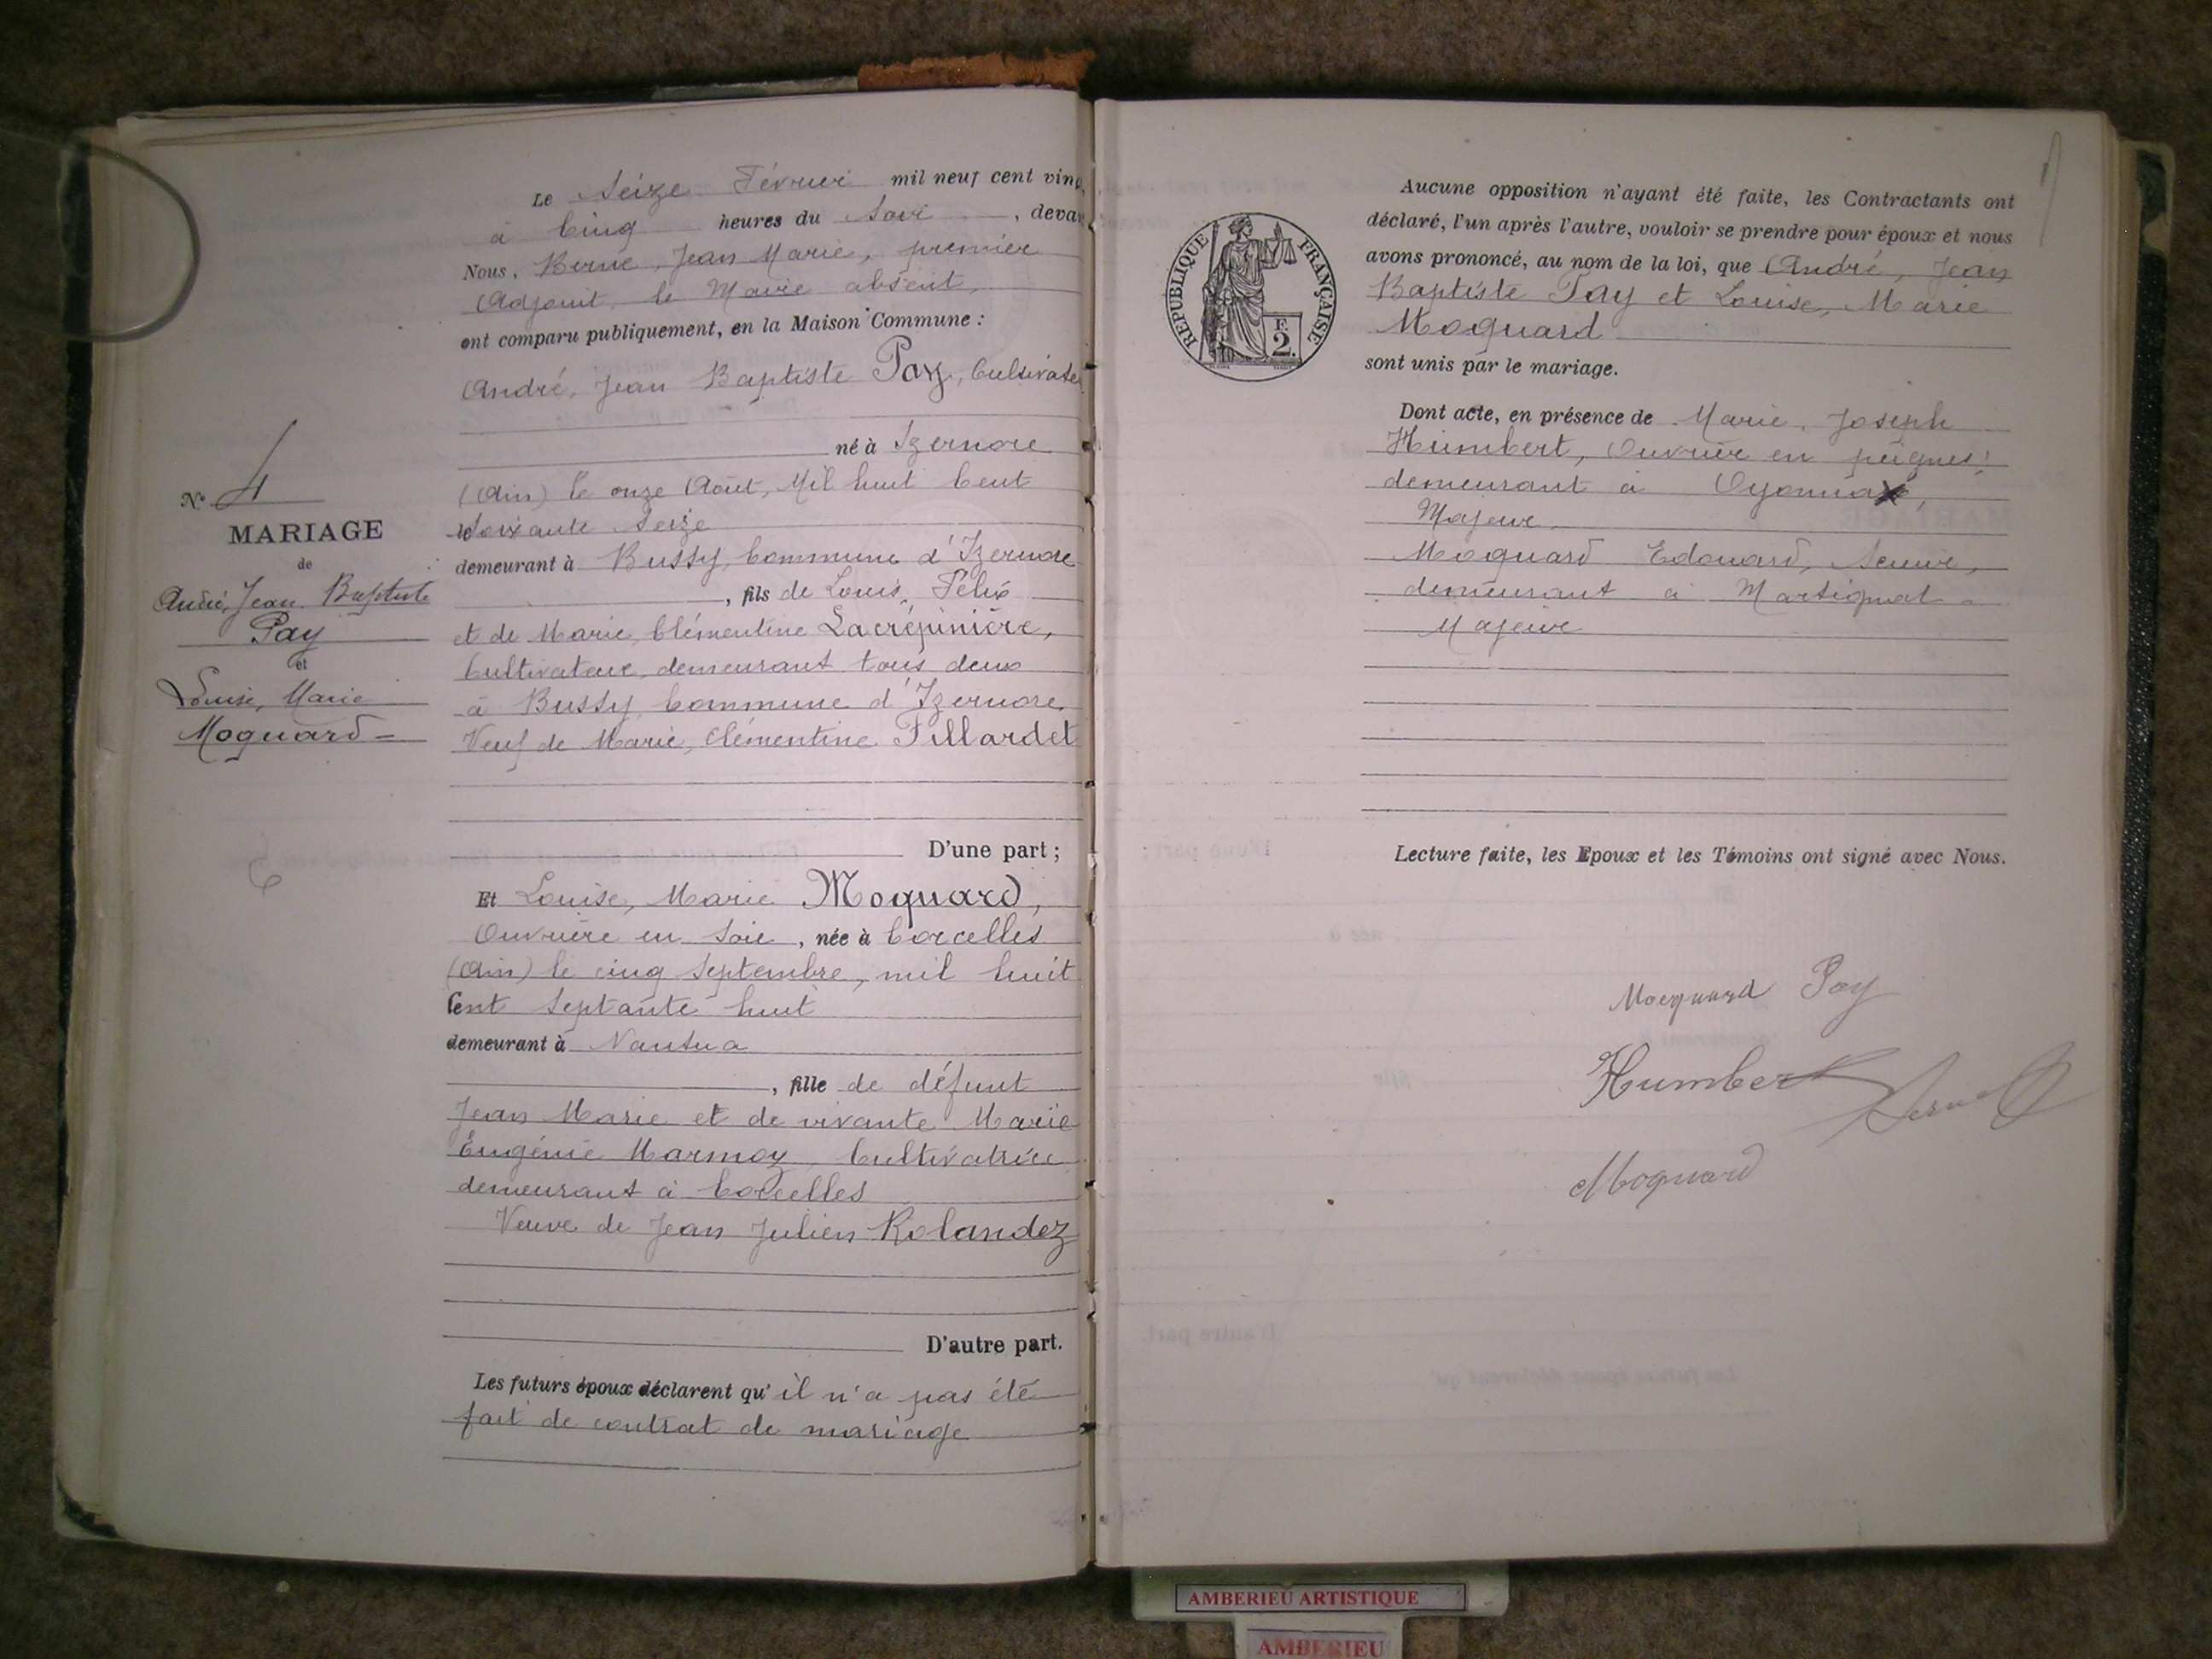 Le Seize Février mil neuf cent ving
à Cinq heures du Soir, devan
Nous, Berne, Jean Marie, premier
Adjoint, le Maire absent,
ont comparu publiquement, en la Maison Commune :
André, Jean Baptiste Pay, Cultivate
né à Izernore
(Ain) le onze Août, Mil huit Cent
soixante Seize
demeurant à Bussy, Commune d'Izernore
, fils de Louis, Félix
et de Marie, Clémentine Lacrépinière,
Cultivateur, demeurant tous deux
à Bussy, Commune d'Izernore.
Veuf de Marie, Clémentine Pillardet
D'une part ;
N° 4
MARIAGE
de
André, Jean Baptiste
Pay
et
Louise, Marie
Moquard
Et Louise, Marie Moquard,
Ouvrière en Soie, née à Corcelles
(Ain) le cinq Septembre, mil huit
Cent Septante huit
demeurant à Nantua
, fille de défunt
Jean Marie et de vivante Marie
Eugénie Marmoy Cultivatrice
demeurant à Corcelles
Veuve de Jean Julien Rolandez
D'autre part.
Les futurs époux déclarent qu'il n'a pas été
fait de contrat de mariage
RÉPUBLIQUE FRANÇAISE
F.
2.
Aucune opposition n'ayant été faite, les Contractants ont
déclaré, l'un après l'autre, vouloir se prendre pour époux et nous
avons prononcé, au nom de la loi, que André, Jean
Baptiste Pay et Louise, Marie
Moquard
sont unis par le mariage.
Dont acte, en présence de Marie, Joseph
Humbert, Ouvrier en peignes,
demeurant à Oyonnax,
Majeur
Moquard Edouard,
demeurant à Martignat
Majeur
Lecture faite, les Epoux et les Témoins ont signé avec Nous.
Mocquard Pay
Humbert
Moquard
AMBERIEU ARTISTIQUE
AMBERIEU